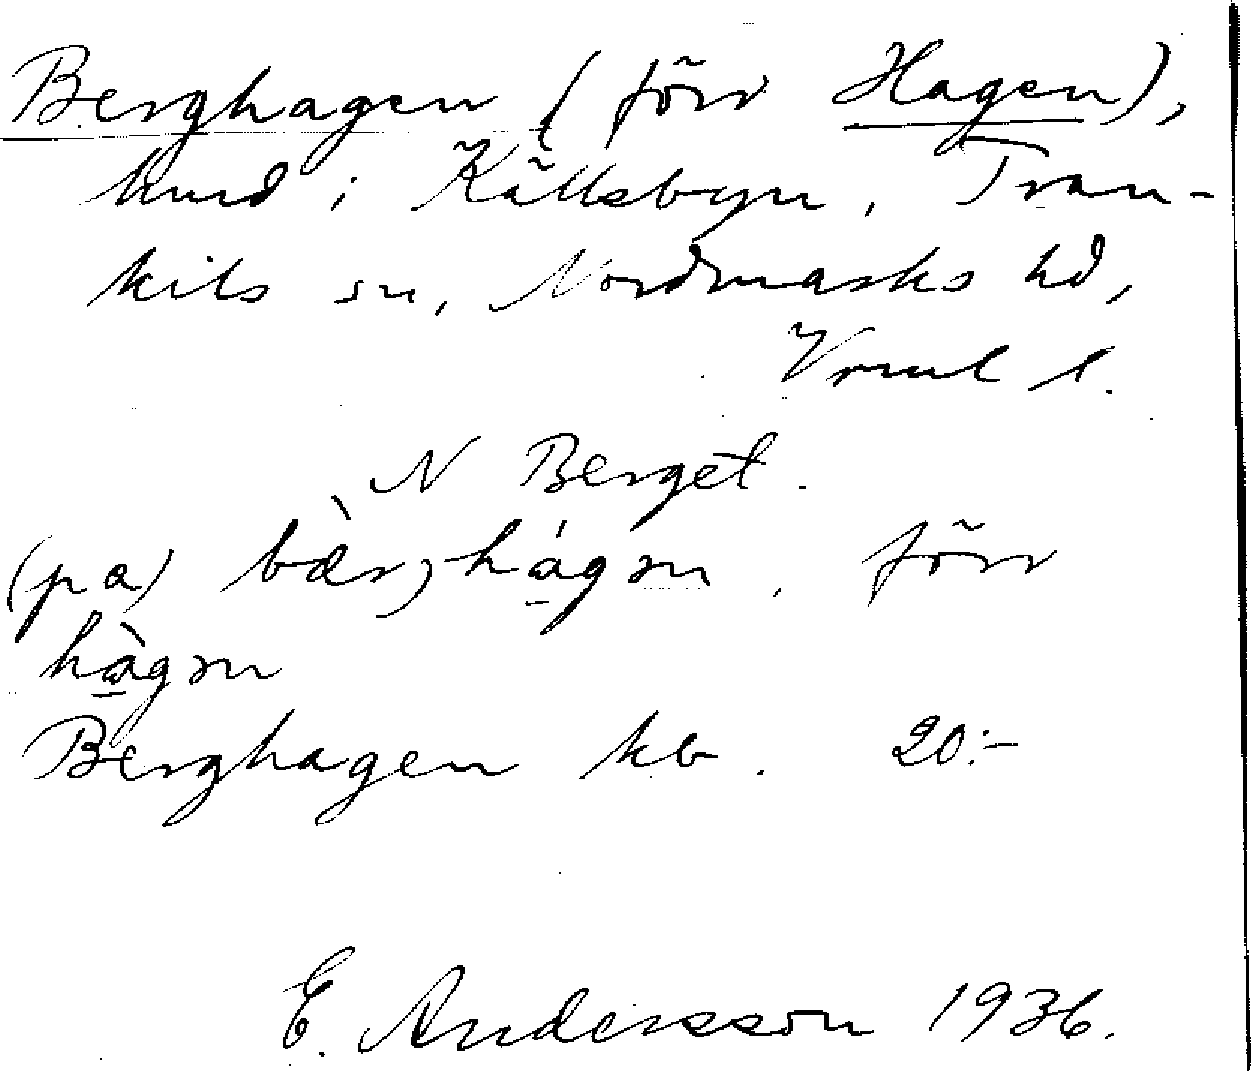 Berghagen (förr Hagen),
hmd i Källsbyn, Tran-
kils sn, Nordmarks hd,
Vrml l.
N Berget.
(pa) bær̀j-hágən, förr
hàgən
Berghagen kb. 20:-
E. Andersson 1936.